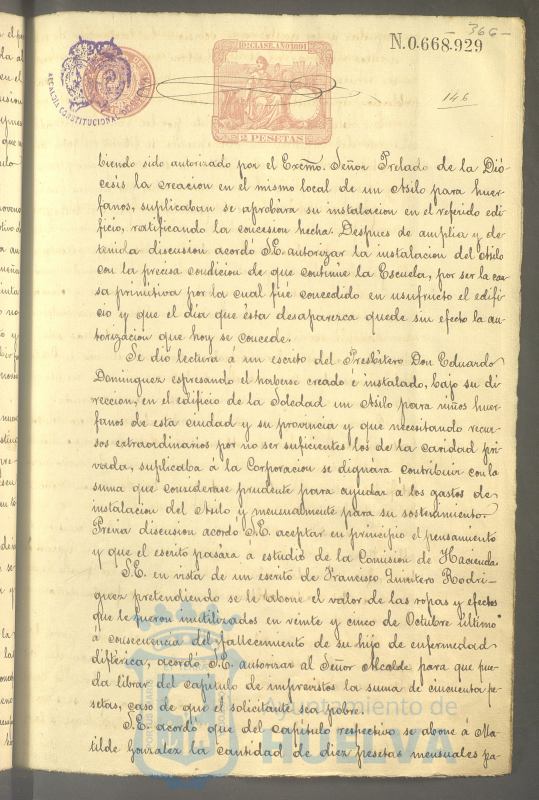 366-
N. 0.668.929
10ª CLASE. AÑO 1891
2 PESETAS
ALCALDIA CONSTITUCIONAL
146
biendo sido autorizado por el Excmo. Señor Prelado de la Dió-
cesis la creacion en el mismo local de un Asilo para huer-
fanos, suplicaban se aprobara su instalacion en el referido edi-
ficio, ratificando la concesion hecha. Despues de amplia y de-
tenida discusion acordó S.E. autorizar la instalacion del Asilo
con la precisa condicion de que continúe la Escuela, por ser la cau-
sa primitiva por la cual fué concedido en usufructo el edifi-
cio y que el dia que ésta desaparezca quede sin efecto la au-
torizacion que hoy se concede.
Se dió lectura á un escrito del Presbítero Don Eduardo
Dominguez espresando el haberse creado é instalado, bajo su di-
reccion, en el edificio de la Soledad un Asilo para niños huer-
fanos de esta ciudad y su provincia y que necesitando recur-
sos extraordinarios por no ser suficientes los de la caridad pri-
vada, suplicaba á la Corporacion se dignára contribuir con la
suma que considerase prudente para ayudar á los gastos de
instalacion del Asilo y mensualmente para su sostenimiento.
Previa discusion acordó S.E. aceptar en principio el pensamiento
y que el escrito pasára á estudio de la Comision de Hacienda.
S.E. en vista de un escrito de Francisco Quintero Rodri-
guez pretendiendo se le abone el valor de las ropas y efectos
que le fueron inutilizados en veinte y cinco de Octubre último
á consecuencia del fallecimiento de su hijo de enfermedad
diftérica, acordó S.E. autorizar al Señor Alcalde para que pue-
da librar del capítulo de imprevistos la suma de cincuenta pe-
setas, caso de que el solicitante sea pobre.
S.E. acordó que del capítulo respectivo se abone á Ma-
tilde Gonzalez la cantidad de diez pesetas mensuales pa-
Ayuntamiento de
HUELVA